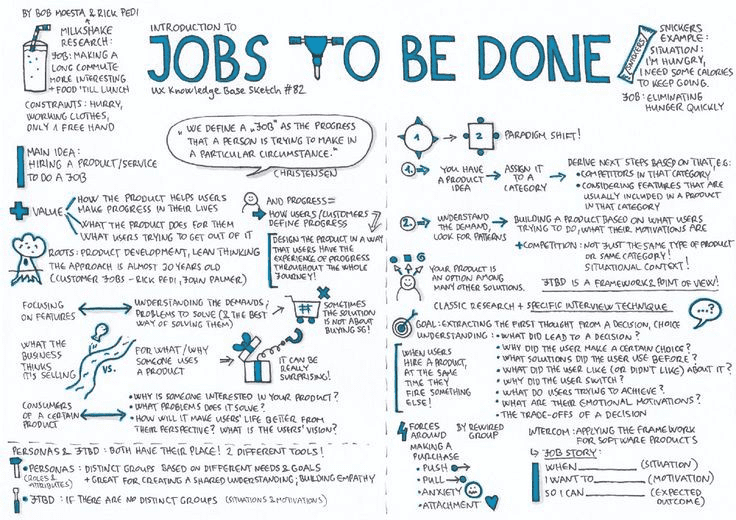 BY BOB MOESTA & RICK PEDI
MILKSHAKE
RESEARCH:
JOB: MAKING A
LONG COMMUTE
MORE INTERESTING
+ FOOD 'TILL LUNCH
CONSTRAINTS: HURRY,
WORKING CLOTHES,
ONLY 1 FREE HAND
INTRODUCTION TO
JOBS TO BE DONE
UX Knowledge Base Sketch #82
SNICKERS
EXAMPLE:
SITUATION:
I'M HUNGRY,
I NEED SOME CALORIES
TO KEEP GOING.
JOB: ELIMINATING
HUNGER QUICKLY
SNICKERS
MAIN IDEA:
HIRING A PRODUCT/SERVICE
TO DO A JOB
"WE DEFINE A „JOB" AS THE PROGRESS
THAT A PERSON IS TRYING TO MAKE IN
A PARTICULAR CIRCUMSTANCE."
CHRISTENSEN
VALUE
HOW THE PRODUCT HELPS USERS
MAKE PROGRESS IN THEIR LIVES
WHAT THE PRODUCT DOES FOR THEM
WHAT USERS TRYING TO GET OUT OF IT
AND PROGRESS=
HOW USERS/CUSTOMERS
DEFINE PROGRESS
DESIGN THE PRODUCT IN A WAY
THAT USERS HAVE THE
EXPERIENCE OF PROGRESS
THROUGHOUT THE WHOLE
JOURNEY!
ROOTS: PRODUCT DEVELOPMENT, LEAN THINKING
THE APPROACH IS ALMOST 20 YEARS OLD
(CUSTOMER JOBS - RICK PEDI, JOHN PALMER)
FOCUSING
ON FEATURES
UNDERSTANDING THE DEMANDS,
PROBLEMS TO SOLVE (& THE BEST
WAY OF SOLVING THEM)
#
SOMETIMES
THE SOLUTION
IS NOT ABOUT
BUYING SG!
WHAT THE
BUSINESS
THINKS
IT'S SELLING
VS.
FOR WHAT / WHY
SOMEONE USES
A PRODUCT
?
IT CAN BE
REALLY
SURPRISING!
CONSUMERS
OF A CERTAIN
PRODUCT
• WHY IS SOMEONE INTERESTED IN YOUR PRODUCT?
• WHAT PROBLEMS DOES IT SOLVE?
• HOW WILL IT MAKE USERS' LIFE BETTER FROM
THEIR PERSPECTIVE? WHAT IS THE USERS' VISION?
PERSONAS & JTBD: BOTH HAVE THEIR PLACE! 2 DIFFERENT TOOLS!
• PERSONAS: DISTINCT GROUPS BASED ON DIFFERENT NEEDS & GOALS
(ROLES & ATTRIBUTES) + GREAT FOR CREATING A SHARED UNDERSTANDING, BUILDING EMPATHY
• JTBD: IF THERE ARE NO DISTINCT GROUPS (SITUATIONS & MOTIVATIONS)
1 → 2 PARADIGM SHIFT!
1. YOU HAVE
A PRODUCT
IDEA
ASSIGN IT
TO A
CATEGORY
DERIVE NEXT STEPS BASED ON THAT, E.G:
• COMPETITORS IN THAT CATEGORY
• CONSIDERING FEATURES THAT ARE
USUALLY INCLUDED IN A PRODUCT
IN THAT CATEGORY
2. UNDERSTAND
THE DEMAND,
LOOK FOR PATTERNS
BUILDING A PRODUCT BASED ON WHAT USERS
TRYING TO DO, WHAT THEIR MOTIVATIONS ARE
+ COMPETITION: NOT JUST THE SAME TYPE OF PRODUCT
OR SAME CATEGORY!
SITUATIONAL CONTEXT!
YOUR PRODUCT IS
AN OPTION AMONG
MANY OTHER SOLUTIONS.
JTBD IS A FRAMEWORK & POINT OF VIEW!
CLASSIC RESEARCH + SPECIFIC INTERVIEW TECHNIQUE
...?
GOAL: EXTRACTING THE FIRST THOUGHT FROM A DECISION, CHOICE
UNDERSTANDING:
• WHAT DID LEAD TO A DECISION?
• WHY DID THE USER MAKE A CERTAIN CHOICE?
• WHAT SOLUTIONS DID THE USER USE BEFORE?
• WHAT DID THE USER LIKE (OR DIDN'T LIKE) ABOUT IT?
• WHY DID THE USER SWITCH?
• WHAT DO USERS TRYING TO ACHIEVE?
• WHAT ARE THEIR EMOTIONAL MOTIVATIONS?
• THE TRADE-OFFS OF A DECISION
WHEN USERS
HIRE A PRODUCT,
AT THE SAME
TIME THEY
FIRE SOMETHING
ELSE!
4 FORCES BY REWIRED
AROUND GROUP
MAKING A
PURCHASE
• PUSH
• PULL
• ANXIETY
• ATTACHMENT
INTERCOM: APPLYING THE FRAMEWORK
FOR SOFTWARE PRODUCTS
JOB STORY:
WHEN ________ (SITUATION)
I WANT TO ________ (MOTIVATION)
SO I CAN ________ (EXPECTED
OUTCOME)